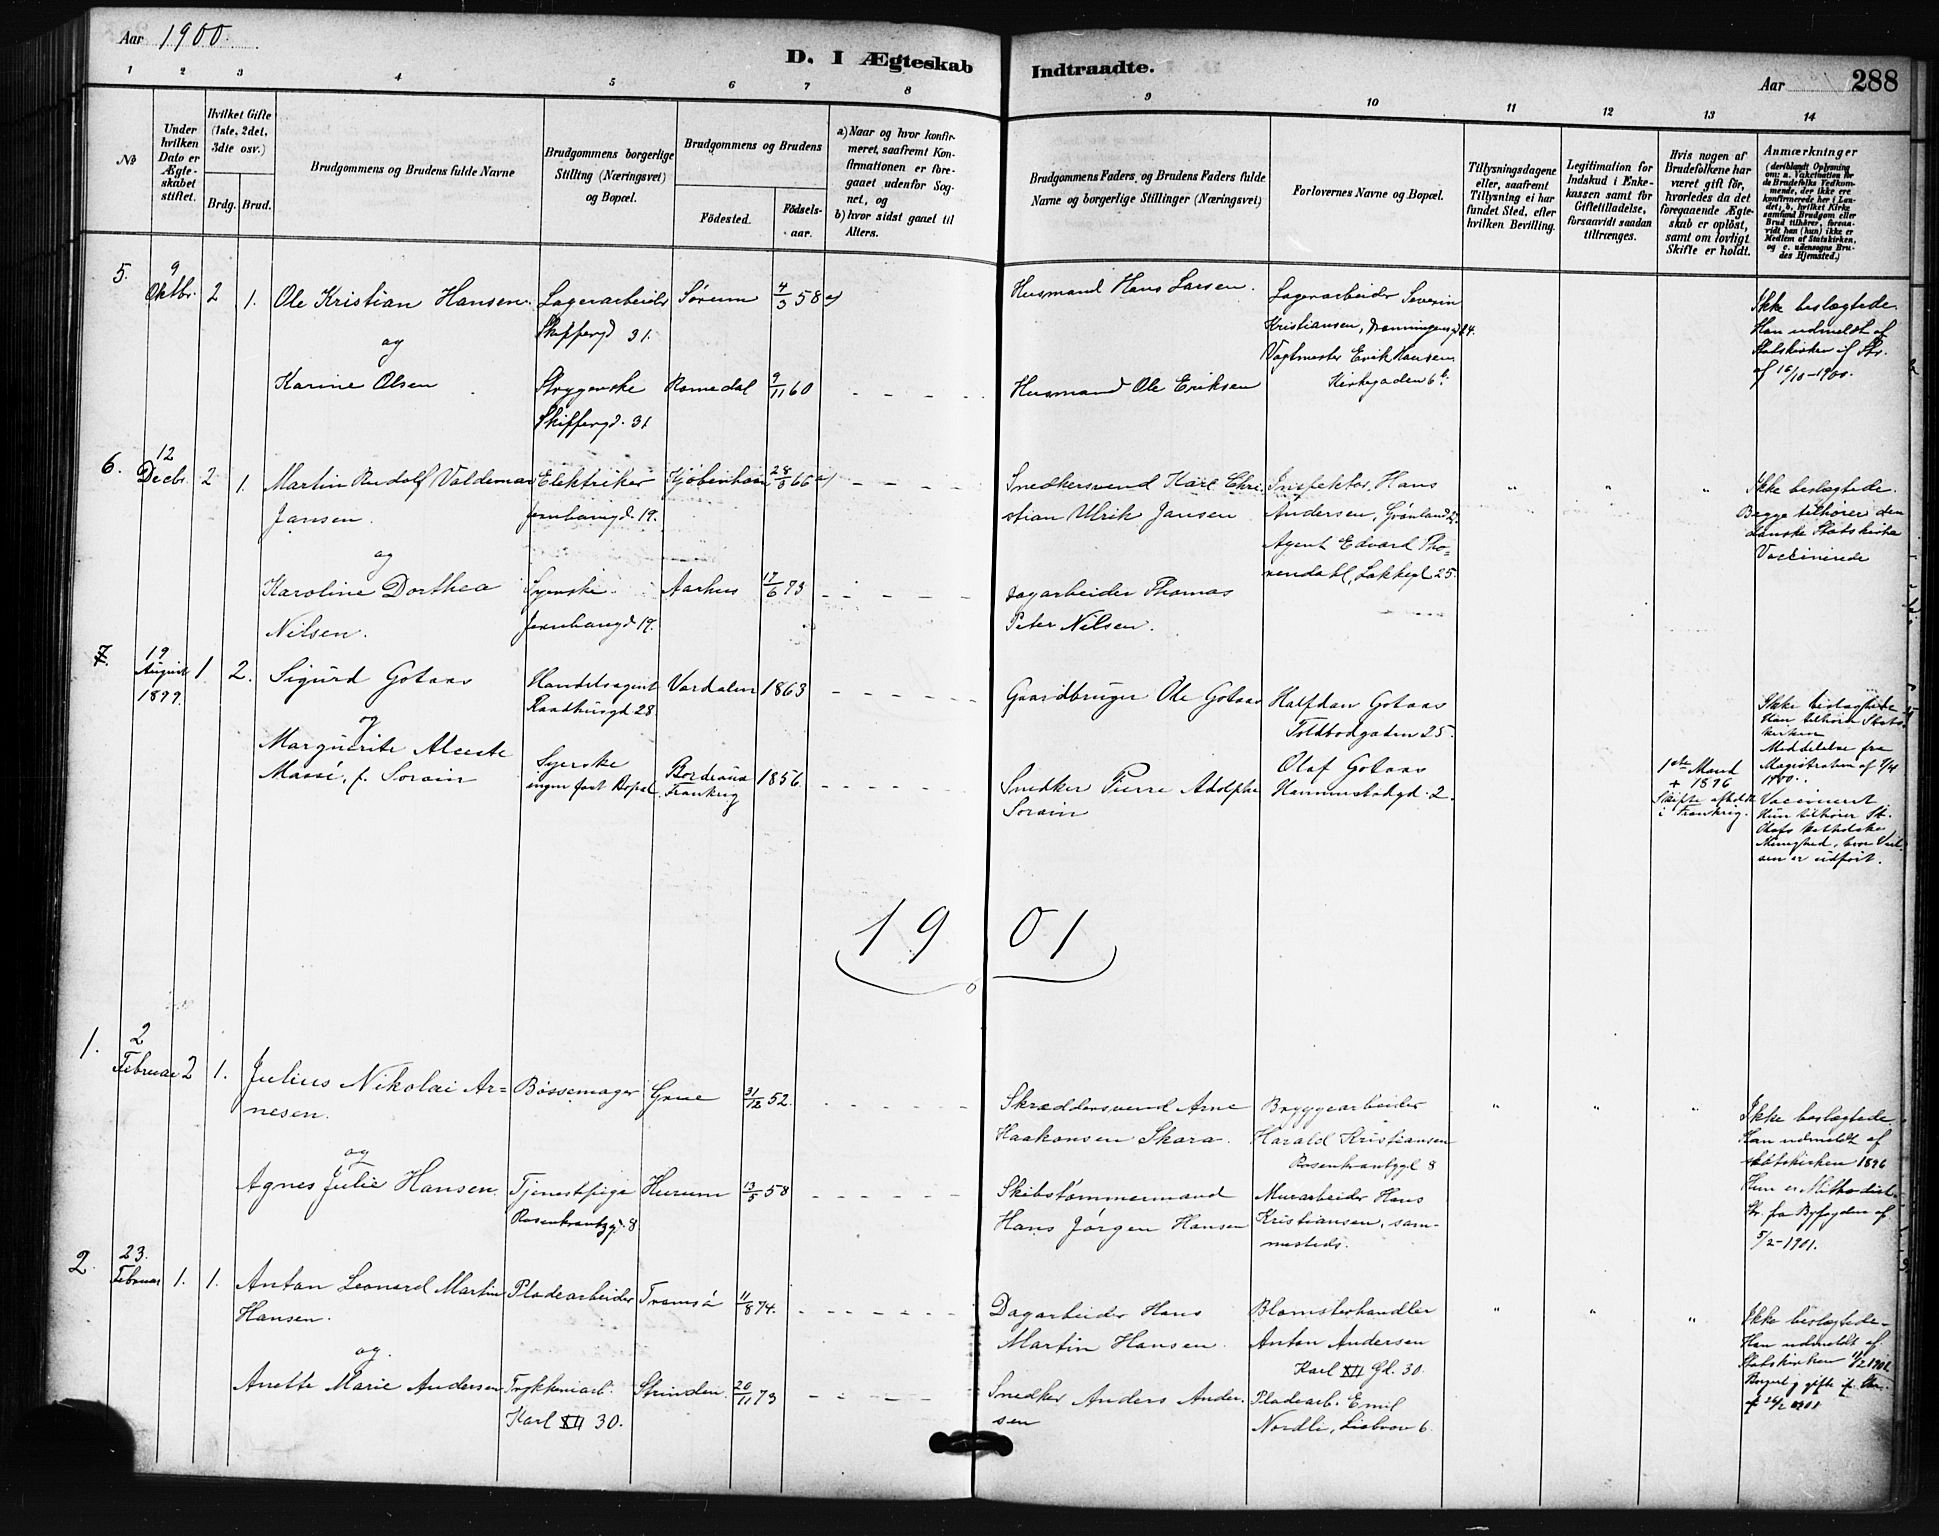 Aar 1900.
D. I Ægteskab Indtraadte.
Aar 288
1 2 3 4 5 6 7 8 9 10 11 12 13 14
No
Under hvilken Dato er Ægteskabet stiftet.
Hvilket Gifte (1ste, 2det, 3die osv.)
Brdg. Brud.
Brudgommens og Brudens fulde Navne
Brudgommens borgerlige Stilling (Næringsvei) og Bopæl.
Brudgommens og Brudens
Fødested. Fødsels-aar.
a) Naar og hvor konfirmeret, saafremt Konfirmationen er foregaaet udenfor Sognet, og
b) hvor sidst ganet til Alters.
Brudgommens Faders, og Brudens Faders fulde Navne og borgerlige Stillinger (Næringsvei)
Forlovernes Navne og Bopæl.
Tillysningsdagene eller, saafremt Tillysning ei har fundet Sted, efter hvilken Bevilling.
Legitimation for Indskud i Enkekassen samt for Giftetilladelse, forsaavidt saadan tiltrænges.
Hvis nogen af Brudefolkene har været gift før, hvorledes da det foregaaende Ægteskab er opløst, samt om lovligt Skifte er holdt.
Anmærkninger
(deriblandt Oplysning om: a. Vakcination for de Brudefolks Vedkommende, der ikke ere konfirmerede her i Landet; b. hvilket Kirkesamfund Brudgom eller Brud tilhører, forsaavidt han (hun) ikke er Medlem af Statskirken, og c. udensogns Brudes Hjemsted.)
5. 9 Oktbr. 2 1. Ole Kristian Hansen
og
Karine Olsen
Lagerarbeider
Skippergd 31.
Strygerske
Skippergd. 31
Sørum 4/3 58 a)
Romedal 9/11 60
Husmand Hans Larsen.
Husmand Ole Eriksen
Lagerarbeider Severin
Kristiansen, Dronningensgd 4.
Vagtmester Erik Hansen
Kirkegaden 6 b.
Ikke beslægtede.
Han udmeldt af
Statskirken
af 16/10-1900.
6. 12 Decbr. 2 1. Martin Rudolf Valdemar
Jansen.
og
Karoline Dorthea
Nilsen.
Elektriker
Jernbanegd. 19.
Syerske
Jernbanegd 19.
Kjøbenhavn 28/8 66 a)
Aarhus 17/6 73
Snedkersvend Karl Chri-
stian Ulrik Jansen
Dagarbeider Thomas
Peter Nilsen.
Inspektør, Hans
Andersen, Grønland
Agent Edvard Tho-
rendahl, Lakkegd 25.
" " "
Ikke beslægtede.
Begge tilhører den
danske Statskirke
Vaccinerede
7. 19 August 1899. 1 2. Sigurd Gotaas
og
Marguerite Alceste
Massé, f. Sorain
Handelsagent
Raadhusgd 28.
Syerske
ingen fast Bopæl.
Vardalen 1863
Bordeaux
Frankrig 1856.
Gaardbruger Ole Gotaas
Snedker Pierre Adolphe
Sorain
Halfdan Gotaas
Toldbodgaden 25.
Olaf Gotaas
Hammerstadgd. 2.
1ste Mand
+ 1896
Skifte afholdt
i Frankrig.
Ikke beslægtede
Han tilhører Stats-
kirken
Meddelelse fra
Magistraten af
1900.
Vaccineret
Hun tilhører St.
Olafs katholske
Menighed, hvor Viel-
sen er udført.
1901
1. 2 Februar 2 1. Julius Nikolai Ar-
nesen.
og
Agnes Julie Hansen.
Bøssemager
Tjenestpige
Rosenkrantzgd. 8
Grue 31/12 52.
Hurum 13/5 58
Skræddersvend Arne
Haakonsen Skara.
Skibstømmermand
Hans Jørgen Hansen
Bryggearbeider
Harald Kristiansen
Rosenkrantzgd 8
Murarbeider Hans
Kristiansen, sam-
mesteds.
" " "
Ikke beslægtede.
Han udmeldt af
Statskirken 1896
Hun er Methodist.
fra Byfogden af
5/2-1901.
2. 23. Februar 1. 1. Anton Leonard Martin
Hansen.
og.
Anette Marie Andersen
Pladearbeider
Trykkeriarb.
Karl XII 30.
Tromsø 11/8 74.
Strinden 20/11 73
Dagarbeider Hans
Martin Hansen.
Snedker Anders Ander-
sen
Blomsterhandler
Anton Andersen
Karl XII Gd. 30.
Pladearb. Emil
Nordli, Liabrov 6.
" " "
Ikke beslægtede.
Han udmeldt af
Statskirken 1/2 1901.
Borgerlig gifte